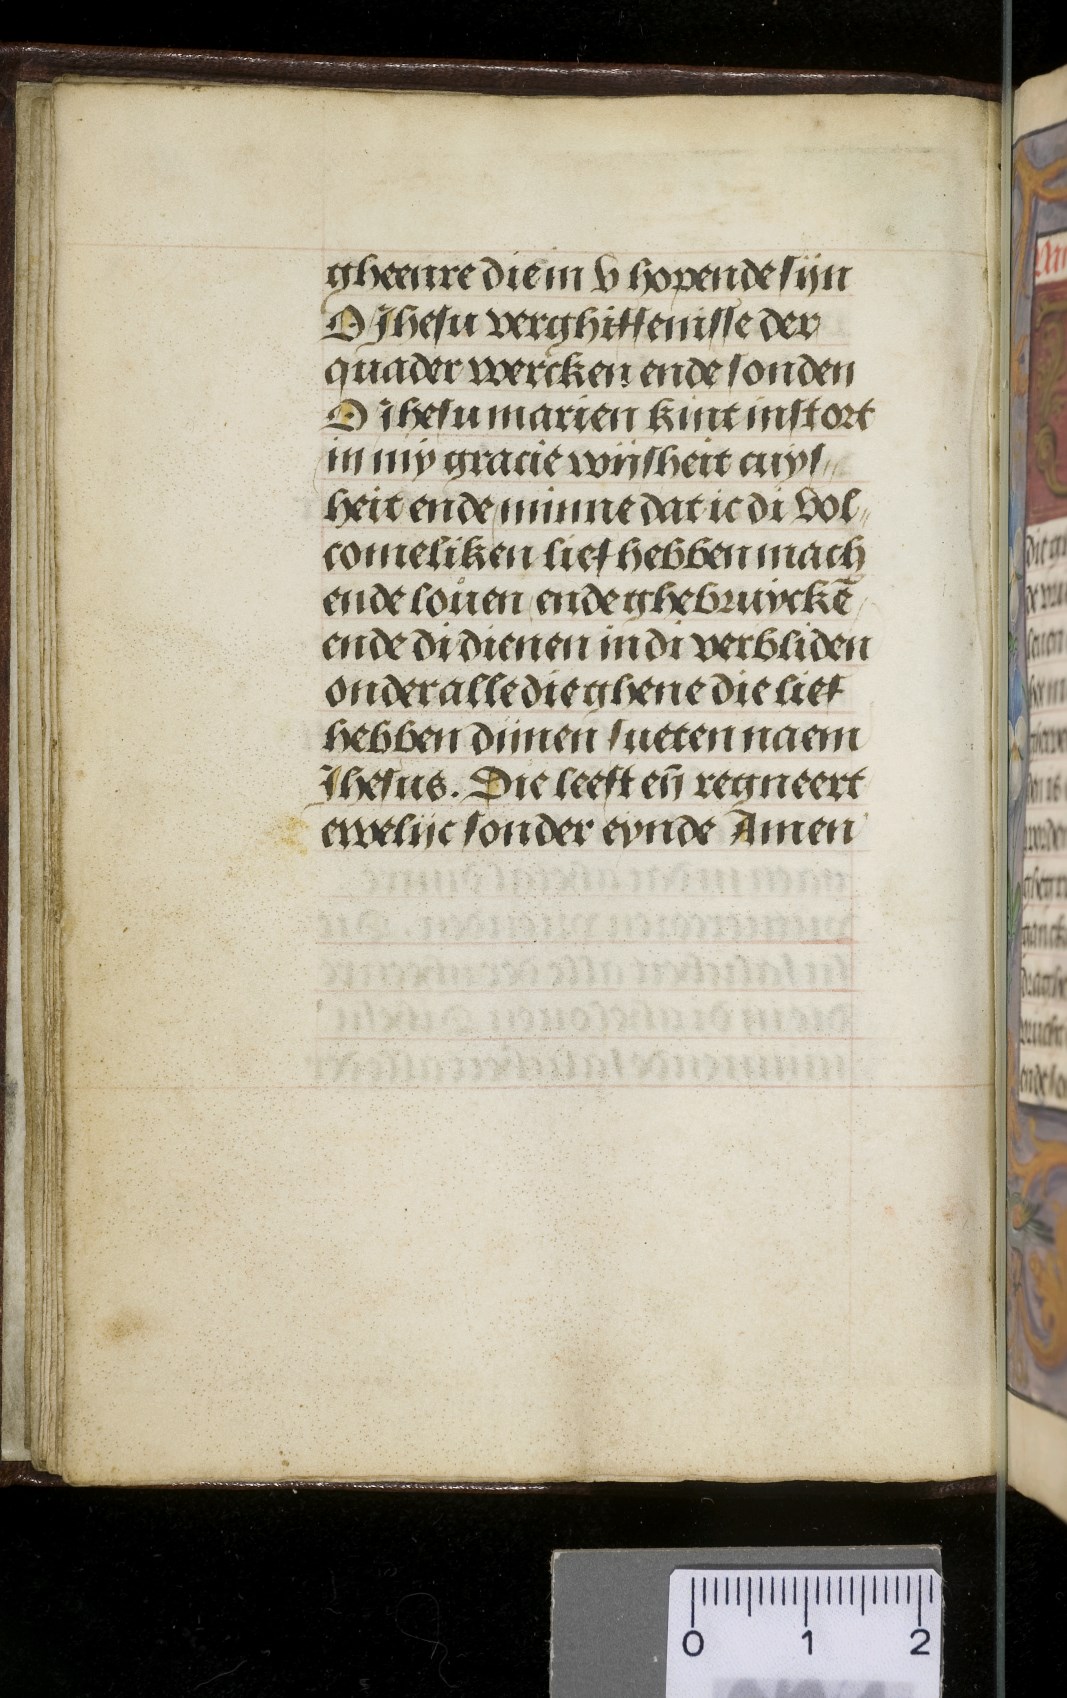 gheenre die in v hopende sijn
O Jhesu verghiffenisse der
quader wercken ende sonden
O Jhesu marien kint instort
in mÿ gracie wijsheit cuys⸗
heit ende minne dat ic di vol⸗
comeliken lief hebben mach
ende louen ende ghebruÿckē
ende di dienen in di verbliden
onder alle die ghene die lief
hebben dijnen sueten naem
Jhesus. Die leeft eñ regneert
ewelijc sonder eynde Amen
0 1 2